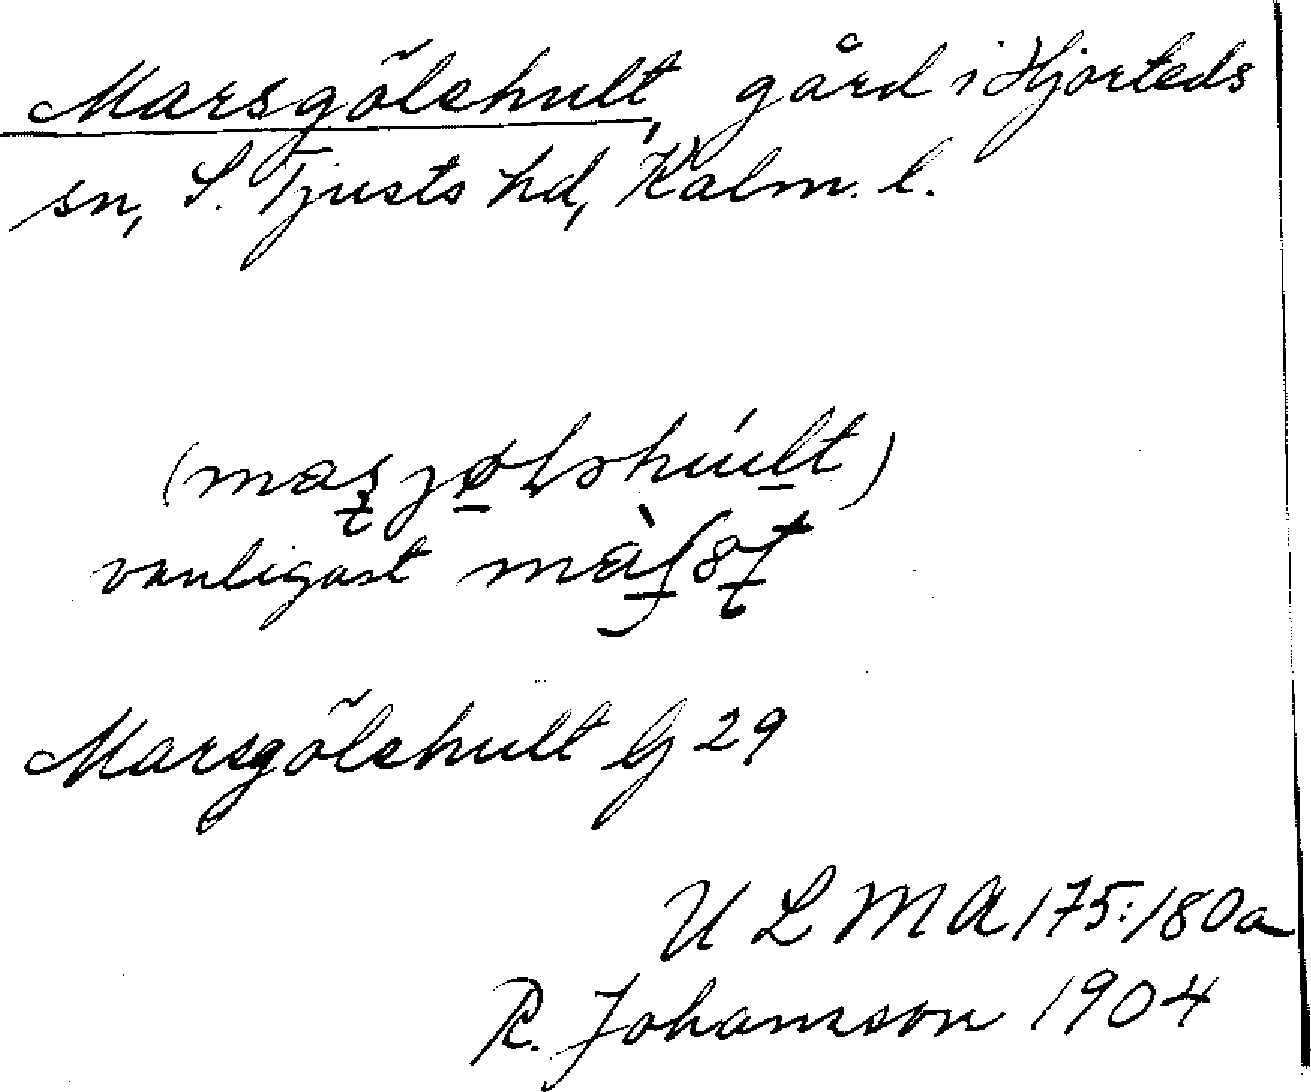 Marsgölehult, gård i Hjorteds
sn, S. Tjusts hd, Kalm. l.
vanligast
Marsgölehult G 29
ULMA 175:180a
R. Johansson 1904